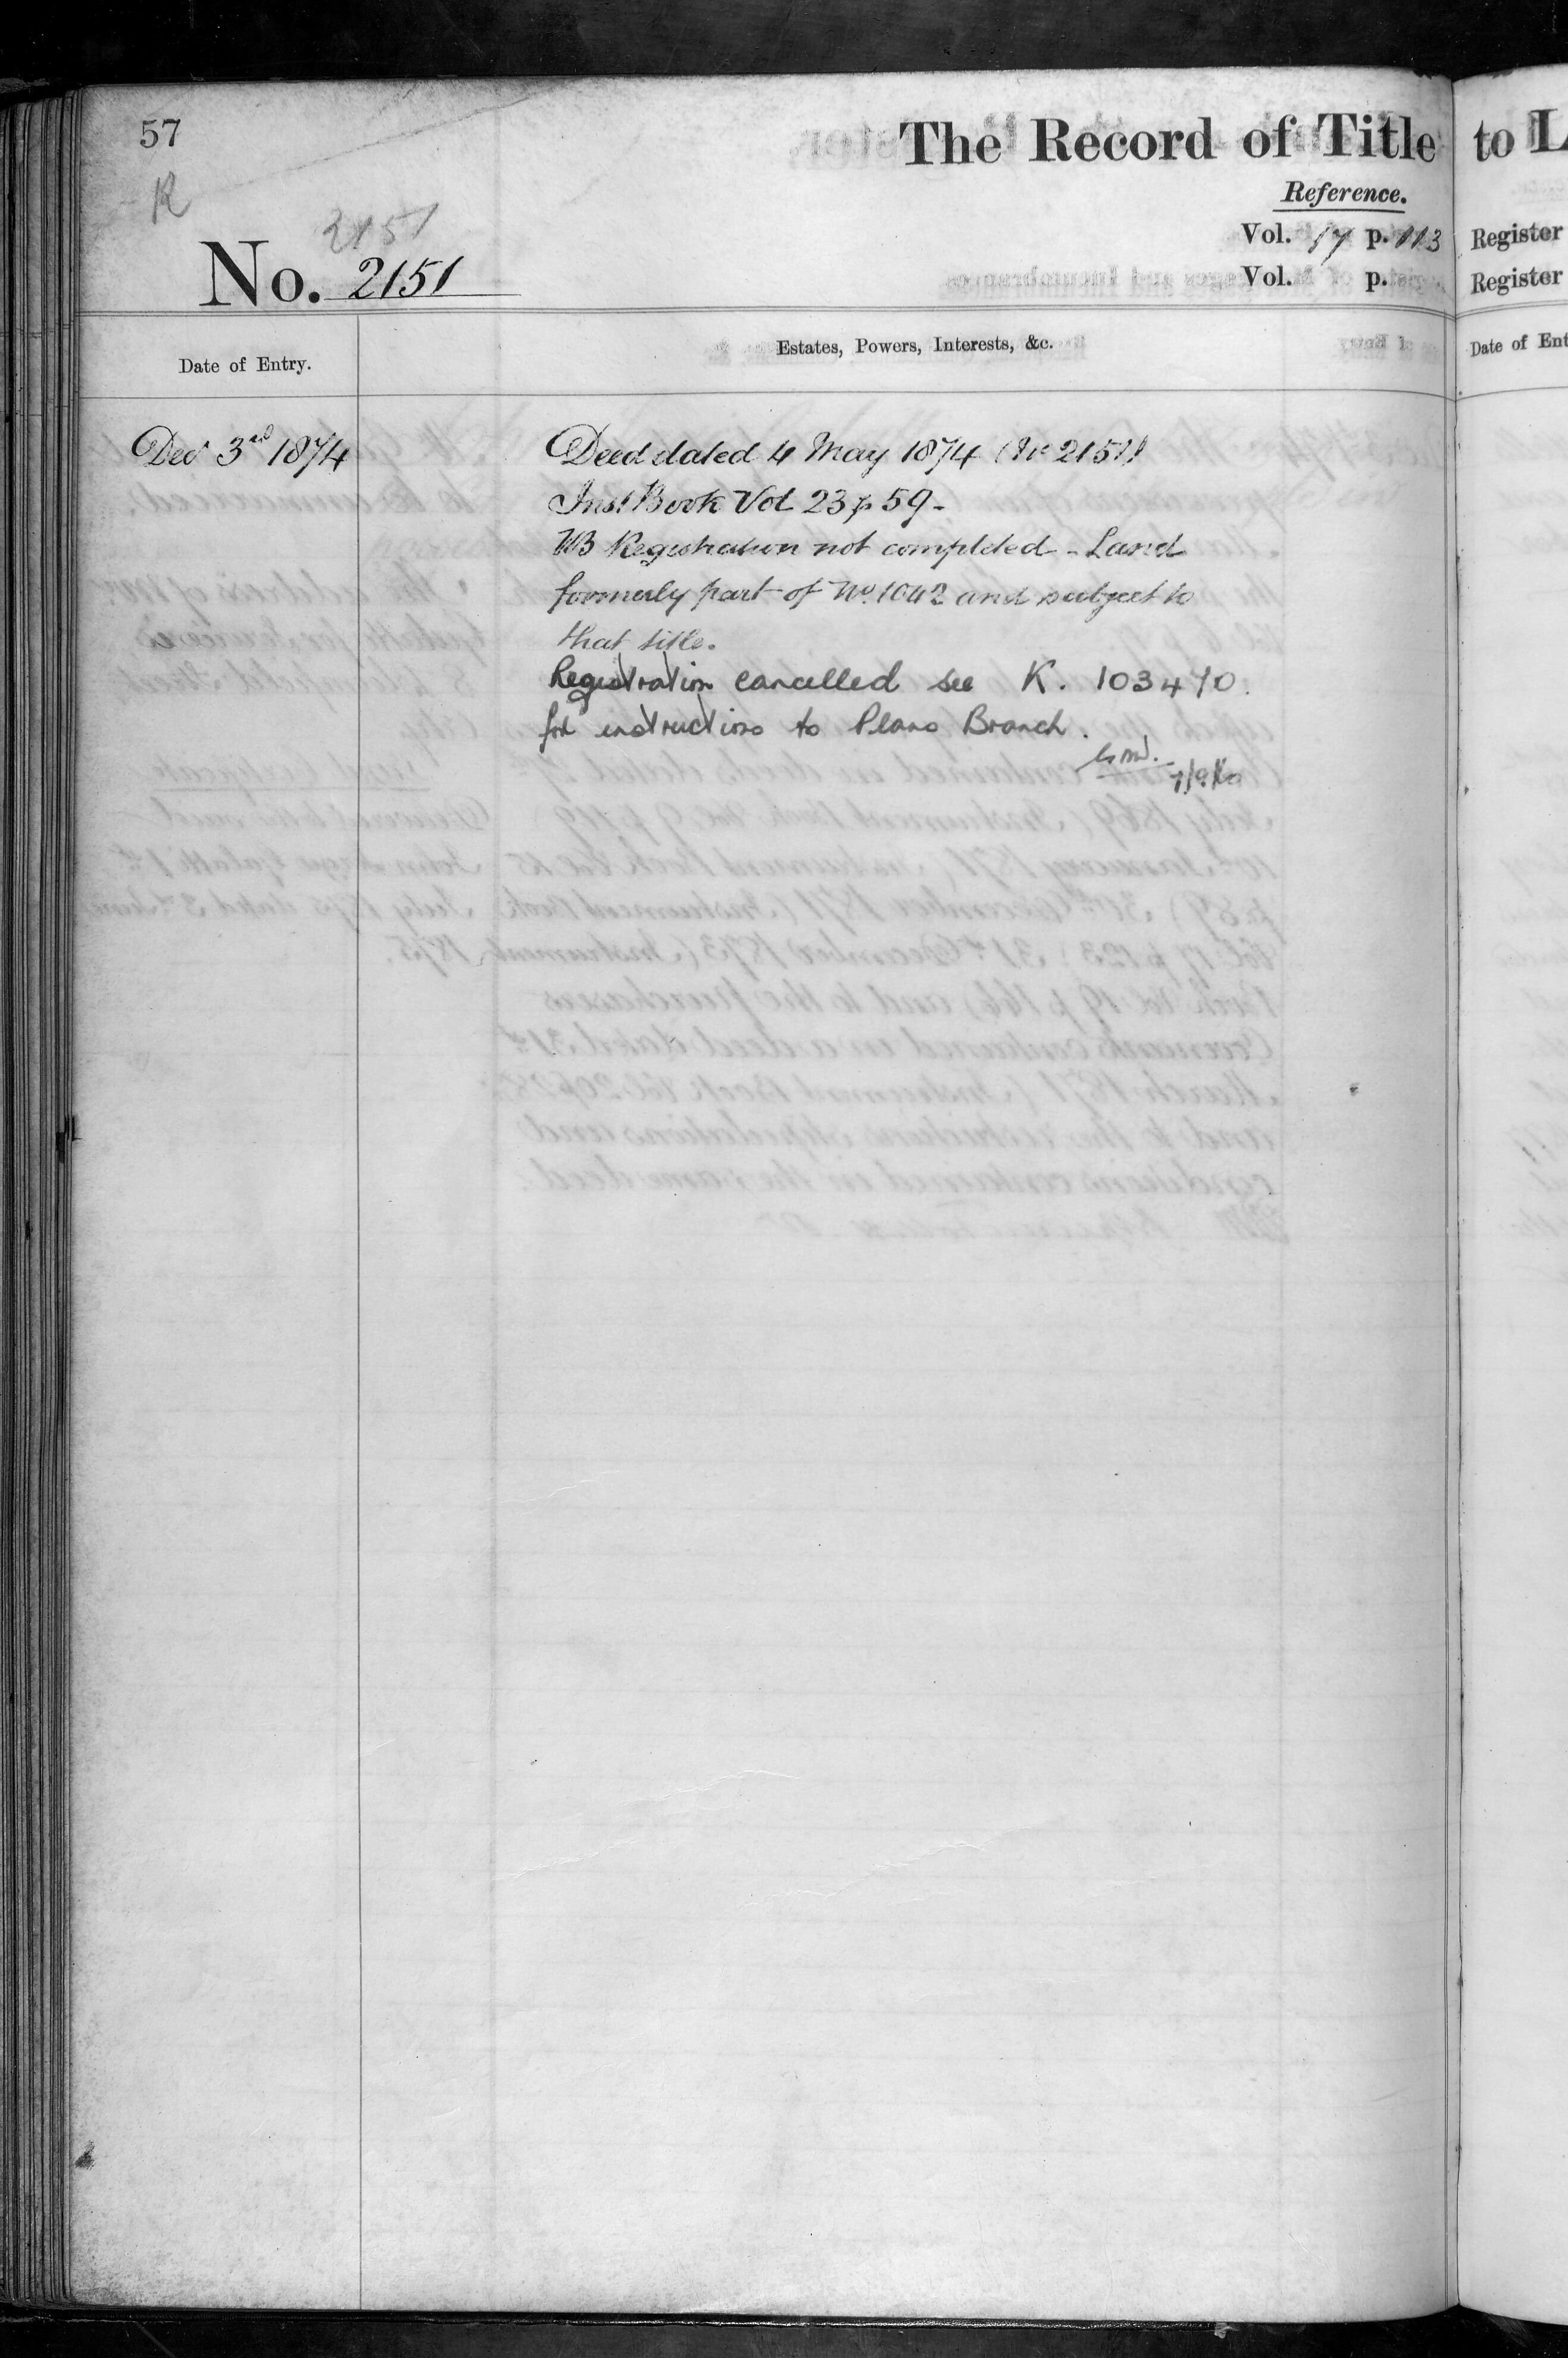 57
The Record of Title to L
R
Reference.
2151
Vol. 17 p. 113 Register
No. 2151
Vol. p. Register
Date of Entry.
Estates, Powers, Interests, &c.
Date of Ent
Decr 3rd 1874
Deed dated 4 May 1874 (No 2151)
Inst Book Vol 23 p 59 -
NB Registration not completed - Land
formerly part of No. 1042 and subject to
that title.
Registration cancelled see K. 103470.
for instructions to Plans Branch.